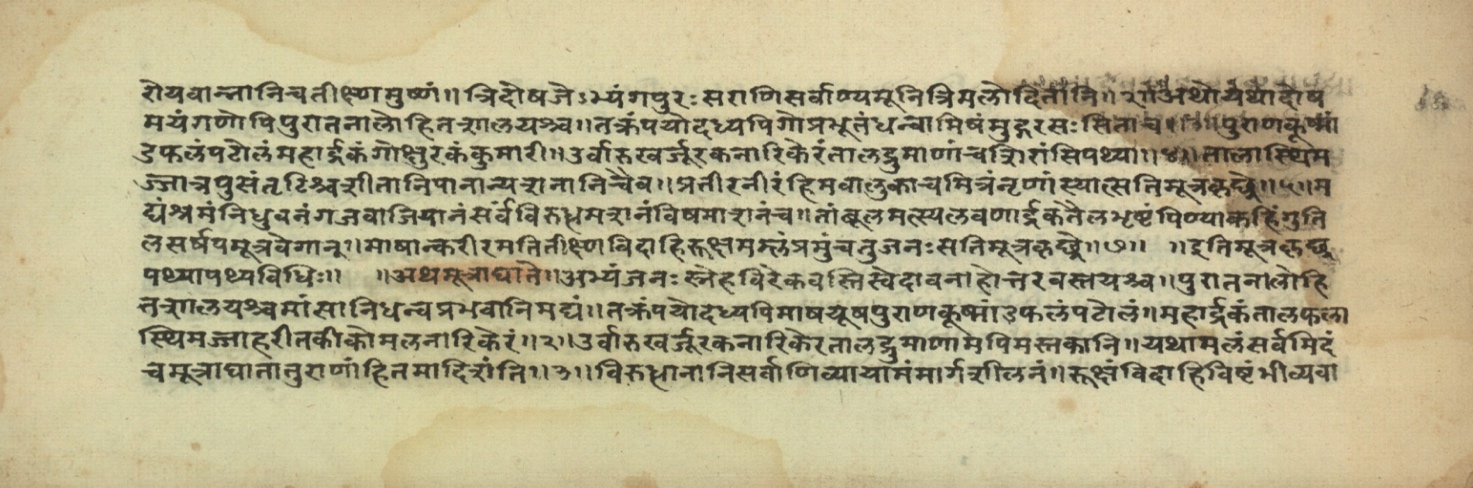 रोयवान्नानिचतीक्ष्णमुष्णं॥ त्रिदोषजेऽभ्यंगपुरःसराणिसर्वाण्यमूनित्रिमलोदितानि॥ अथोयथादोष
मयंगणोपिपुरातनालोहितशालयश्च॥ तक्रंपयोदध्यपिगोप्रभूतंधन्वामिषंमुद्गरसःसिताच॥ पुराणकूष्मां
डफलंपटोलंमहार्द्रकंगोक्षुरकंकुमारी॥ उर्वारुखर्जूरकनारिकेरंतालद्रुमाणांचशिरांसिपथ्या॥४॥ तालास्थिम
ज्जात्रपुसंतृटिश्चशीतानिपानान्यशनानिचैव॥ प्रतीरनीरंहिमवालुकाचमित्रंनृणांस्यात्सतिमूत्रकृच्छ्रे॥५॥ म
द्यंश्रमंनिधुवनंगजवाजियानंसर्वंविरुद्धमशनंविषमाशनंच॥ तांबूलमत्स्यलवणार्द्रकतैलभृष्टंपिण्याकहिंगुति
लसर्षपमूत्रवेगान्॥ माषान्करीरमतितीक्ष्णविदाहिरूक्षमम्लंप्रमुंचतुजनःसतिमूत्रकृच्छ्रे॥७॥ ॥इतिमूत्रकृच्छ्र
पथ्यापथ्यविधिः॥ ॥अथमूत्राघाते॥ अभ्यंजनःस्नेहविरेकवस्तिस्वेदावनाहोत्तरवस्तयश्च॥ पुरातनालोहि
तशालयश्चमांसानिधन्वप्रभवानिमद्यं॥ तक्रंपयोदध्यपिमाषयूषपुराणकूष्मांडफलंपटोलं॥ महार्द्रकंतालफला
स्थिमज्जाहरीतकीकोमलनारिकेरं॥२॥ उर्वारुखर्जूरकनारिकेरतालद्रुमाणामपिमस्तकानि॥ यथामलंसर्वमिदं
चमूत्राघातातुराणांहितमादिशंति॥३॥ विरुद्धानानिसर्वाणिव्यायामंमार्गशीलनं॥ रूक्षंविदाहिविष्टंभीव्यवा